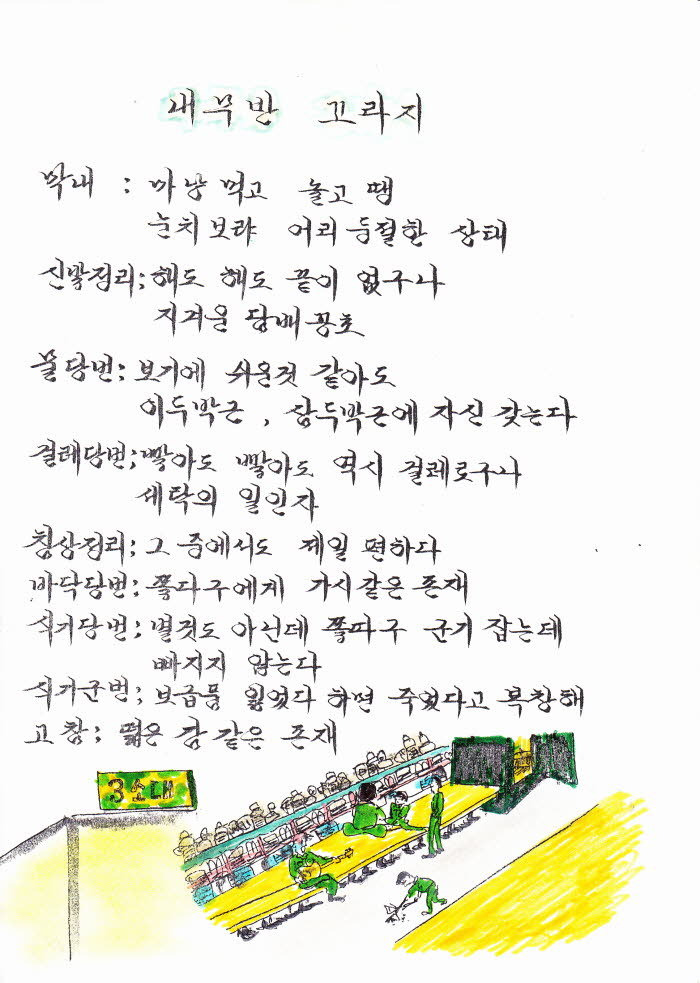 내무반 꼬라지
막내 : 마냥 먹고 놀고 땡
눈치보랴 어리둥절한 상태
신발정리; 해도 해도 끝이 없구나
지겨운 담배꽁초
물당번; 보기에 쉬운것 같아도
이두박근, 삼두박근에 자신 갖는다
걸레당번; 빨아도 빨아도 역시 걸레로구나
세탁의 일인자
침상정리; 그 중에서도 제일 편하다
바닥당번; 쫄다구에게 가시같은 존재
식기당번; 별것도 아닌데 쫄따구 군기 잡는데
빠지지 않는다
식기군번; 보급품 잃었다 하면 죽었다고 복창해
고참; 떫은 감 같은 존재
3소대